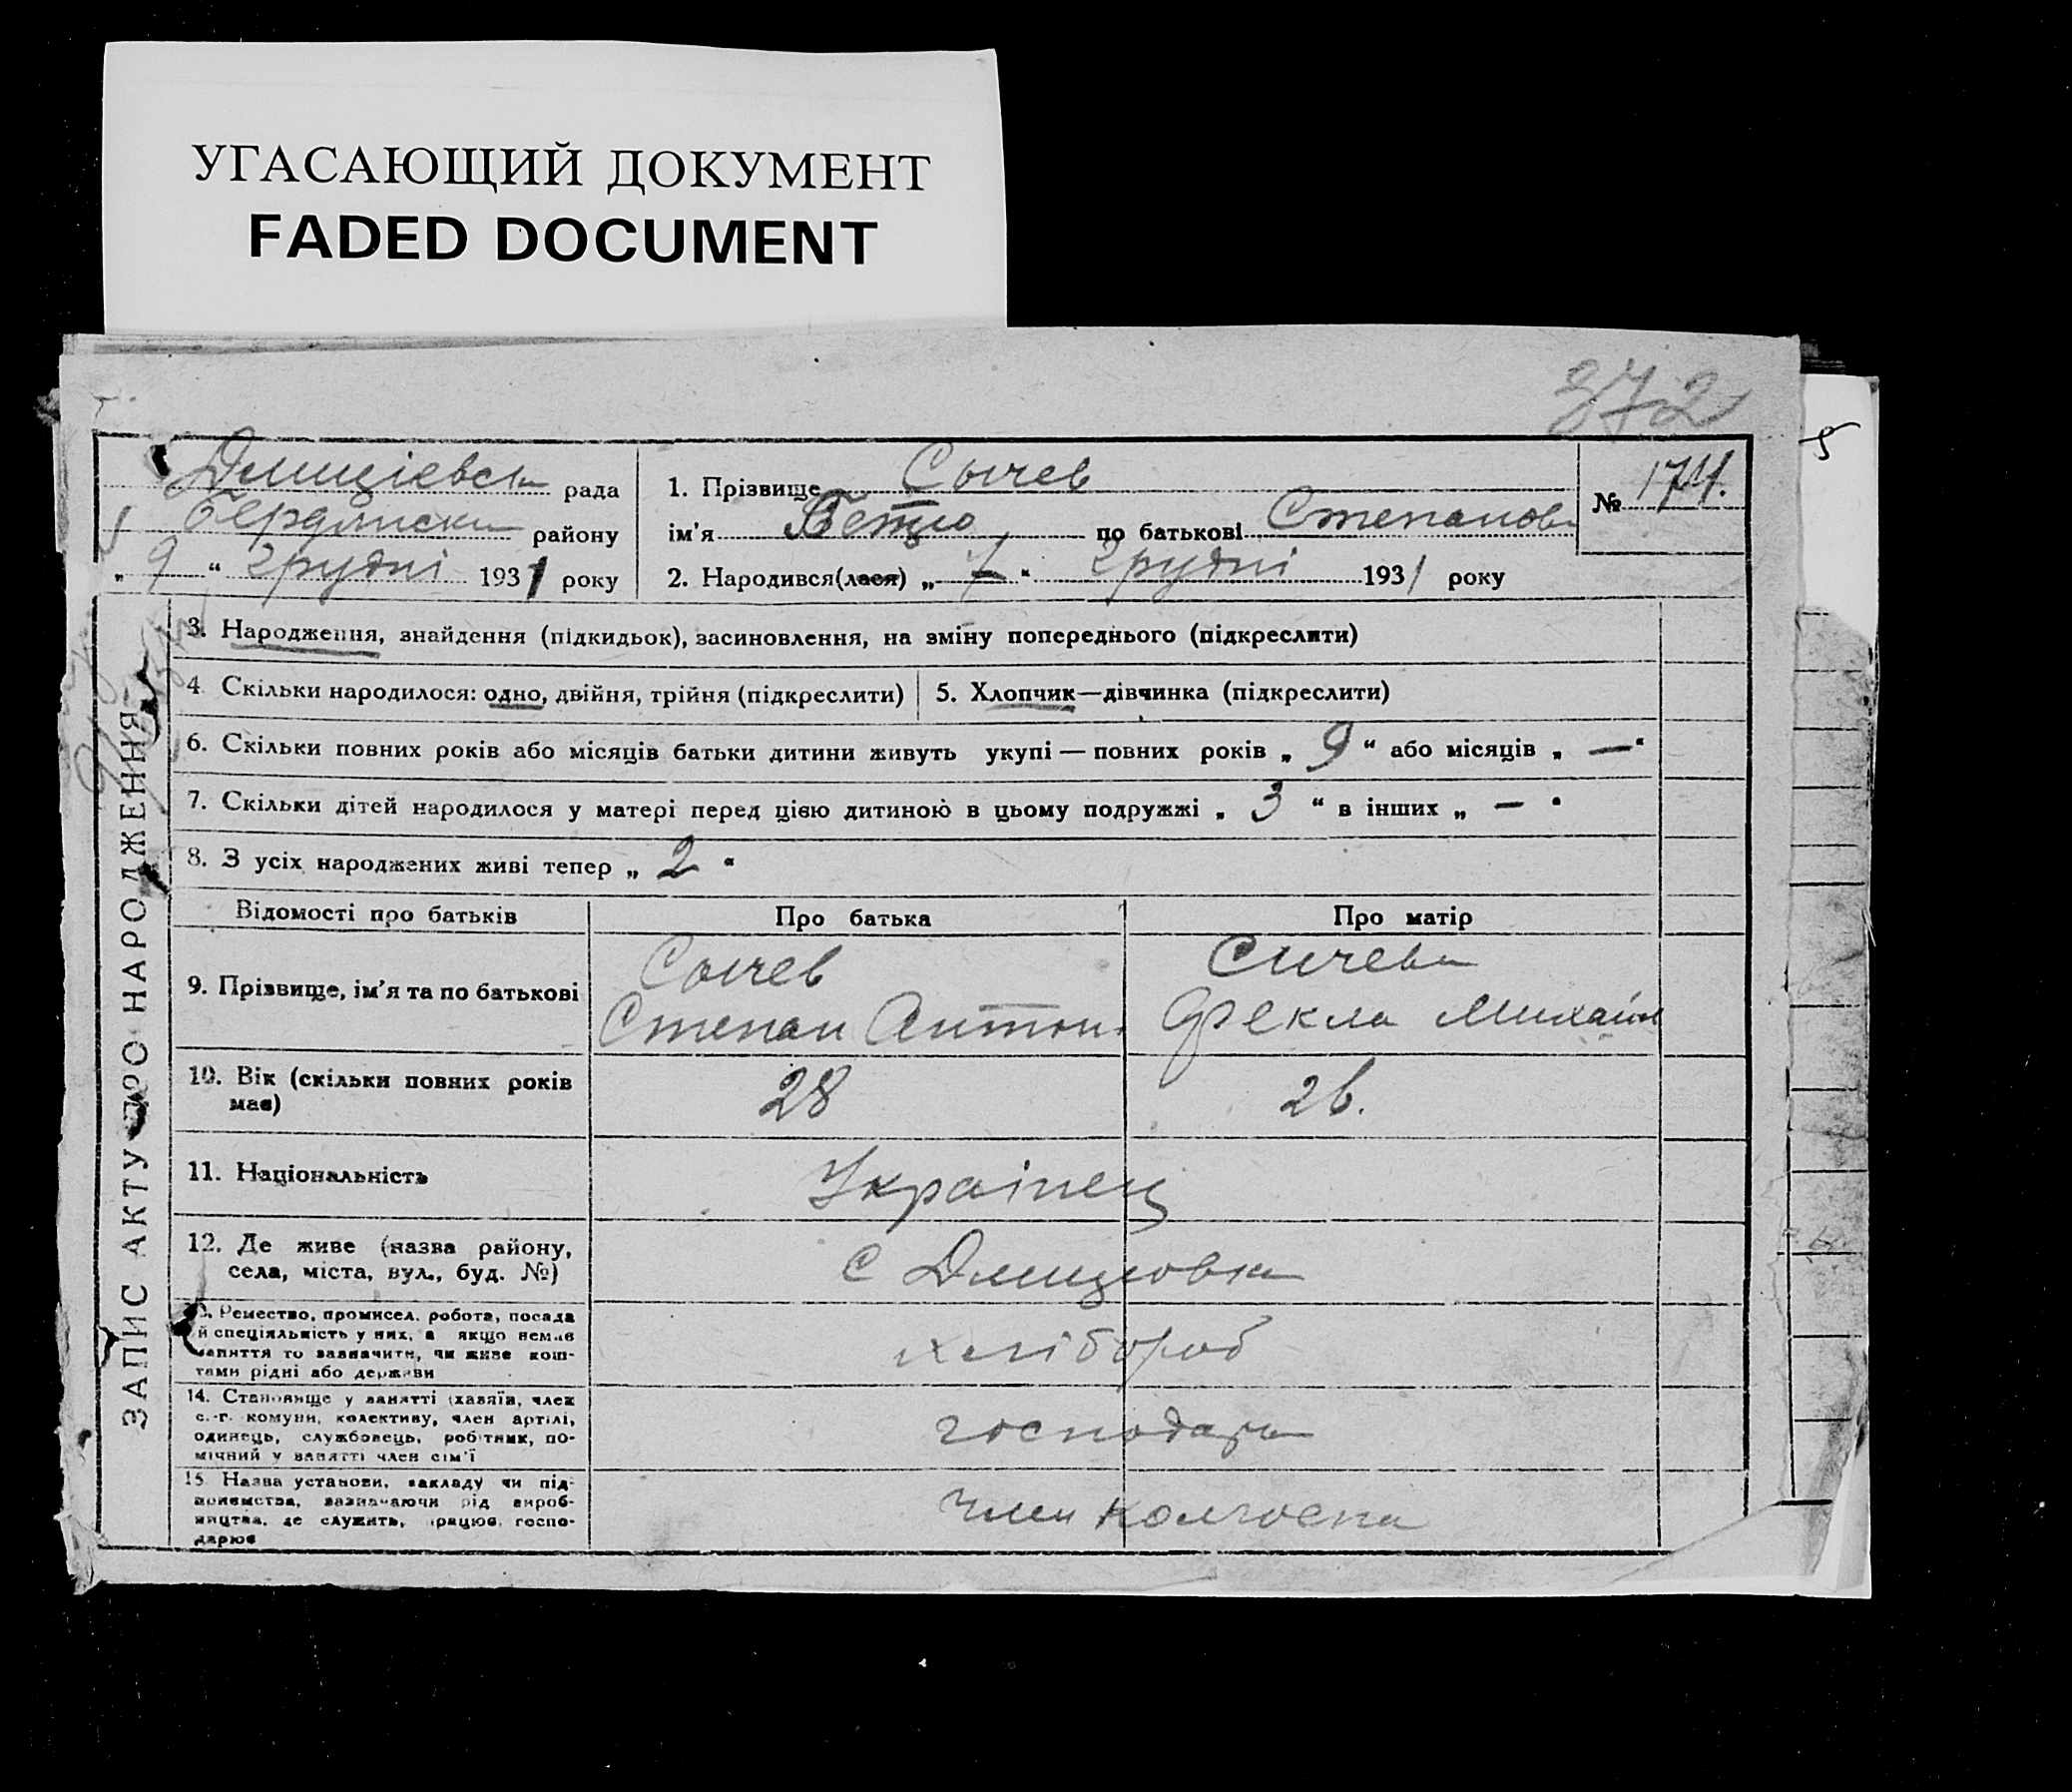 УГАСАЮЩИЙ ДОКУМЕНТ
FADED DOCUMENT
372
рада
району
„ 9 “ грудні 1931 року
1. Прізвище Сычев
ім'я по батькові Степанов
2. Народився(лася) „ 7 “ грудні 1931 року
№ 174.
5
ЗАПИС АКТУ ПРО НАРОДЖЕННЯ
3. Народження, знайдення (підкидьок), засиновлення, на зміну попереднього (підкреслити)
4. Скільки народилося: одно, двійня, трійня (підкреслити)
5. Хлопчик—дівчинка (підкреслити)
6. Скільки повних років або місяців батьки дитини живуть укупі — повних років „ 9 “ або місяців „ — “
7. Скільки дітей народилося у матері перед цією дитиною в цьому подружжі „ 3 “ в інших „ — “
8. З усіх народжених живі тепер „ 2 “
Відомості про батьків
Про батька
Про матір
9. Прізвище, ім'я та по батькові
Сычев
Степан Антон.
Сичева
Фекла Михайл
10. Вік (скільки повних років
має)
28
26.
11. Національність
Украінец
12. Де живе (назва району,
села, міста, вул., буд. №)
с
13. Ремество, промисел, робота, посада
й спеціяльність у них, а якщо немає
заняття то зазначити, чи живе кош-
тами рідні або держави
хлібороб
14. Становище у занятті (хазяїн, член
с.-г. комуни, колективу, член артілі,
одинець, службовець, робітник, по-
мічний у занятті член сім'ї
господарь
15. Назва установи, закладу чи під-
приємства, зазначаючи рід вироб-
ництва, де служить, працює, госпо-
дарює
член колгоспа